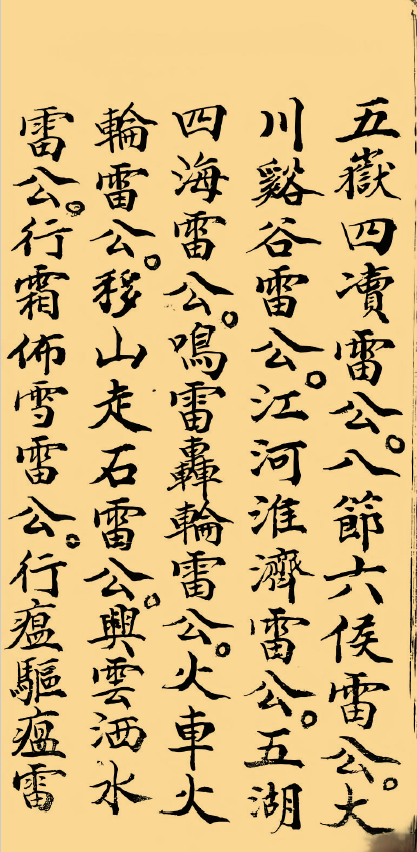 五嶽四瀆雷公。八節六侯雷公。大
川谿谷雷公。江河淮濟雷公。五湖
四海雷公。鳴雷轟輪雷公。火車火
輪雷公。移山走石雷公。興雲洒水
雷公。行霜佈雪雷公。行瘟驅瘟雷